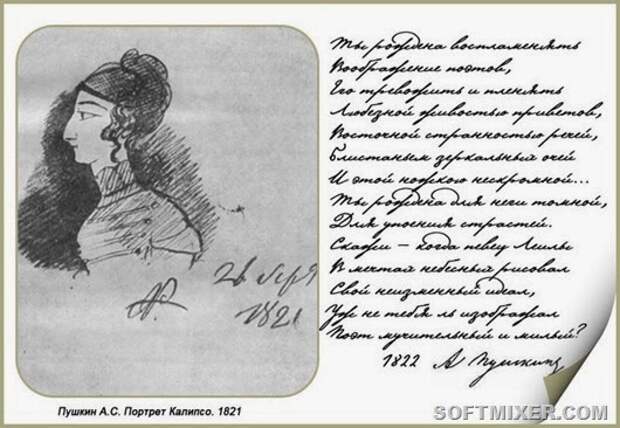 Ты рождена воспламенять
Воображение поэтов,
Его тревожить и пленять
Любезной живостью приветов,
Восточной странностью речей,
Блистаньем зеркальных очей
И этой ножкою нескромной...
Ты рождена для неги томной,
Для упоения страстей.
Скажи — когда певец Леилы
В мечтах небесных рисовал
Свой неизменный идеал,
Уж не тебя ль изображал
Поэт мучительный и милый?
1822 А Пушкин
1821
Пушкин А.С. Портрет Калипсо. 1821
SOFTMIXER.COM